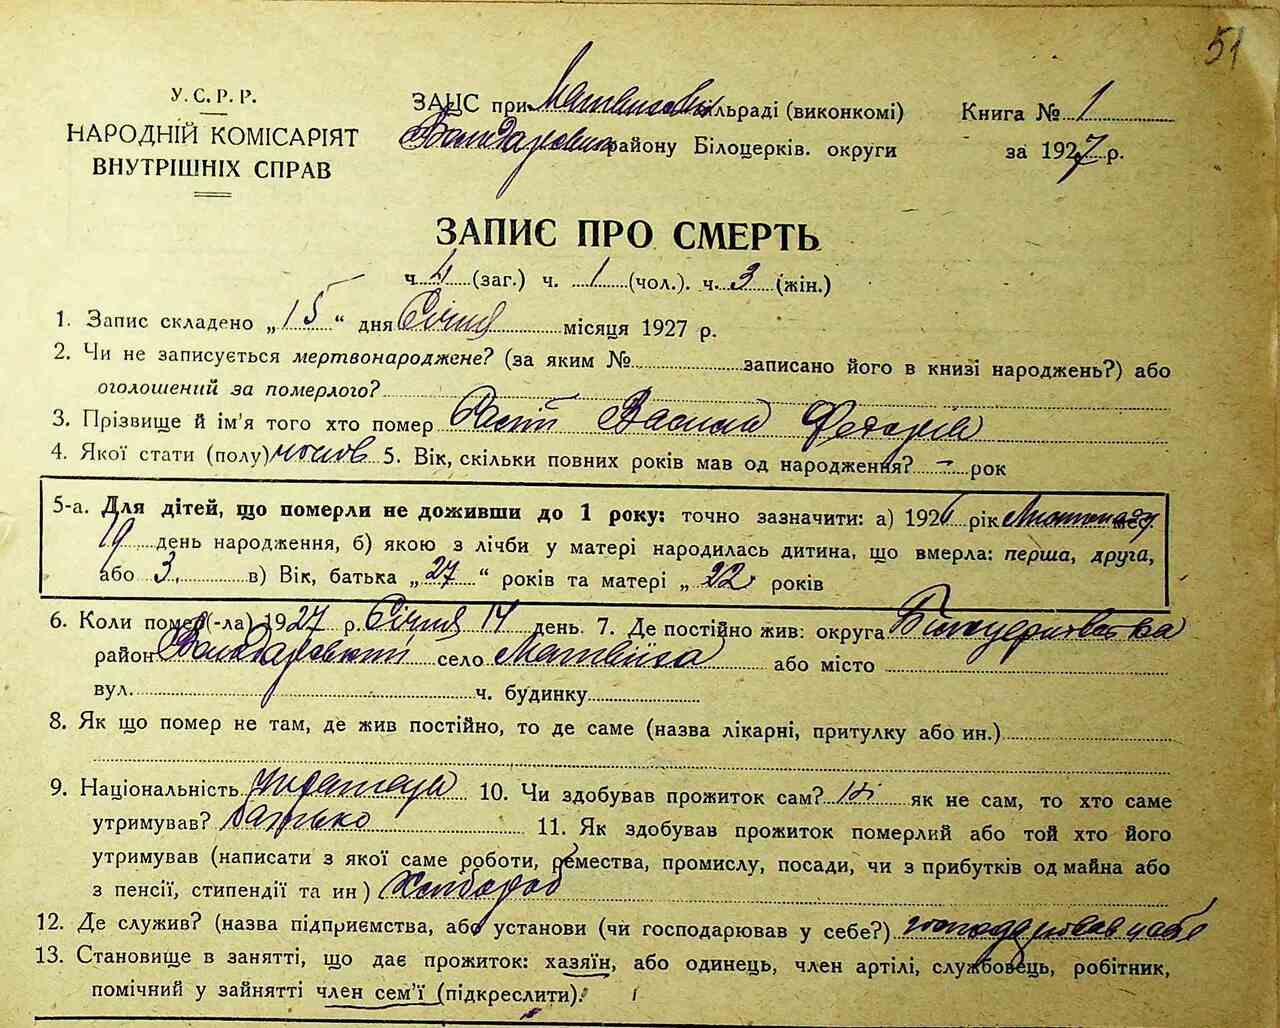 51
У.С.Р.Р.
НАРОДНІЙ КОМІСАРІЯТ
ВНУТРІШНІХ СПРАВ
ЗАЦС при сільраді (виконкомі)
району Білоцерків. округи
Книга № 1
за 1927 р.
ЗАПИС ПРО СМЕРТЬ
ч. 4 (заг.) ч. 1 (чол.). ч. 3 (жін.)
1. Запис складено „15“ дня Січня місяця 1927 р.
2. Чи не записується мертвонароджене? (за яким № записано його в книзі народжень?) або
оголошений за померлого?
3. Прізвище й ім'я того хто помер Василь
4. Якої стати (полу) чолов 5. Вік, скільки повних років мав од народження? – рок
5-а. Для дітей, що померли не доживши до 1 року: точно зазначити: а) 1926 рік Листопаду
19 день народження, б) якою з лічби у матері народилась дитина, що вмерла: перша, друга,
або 3 в) Вік, батька „27“ років та матері „22 років
6. Коли помер(-ла) 1927 р. Січня 14 день. 7. Де постійно жив: округа Білоцерківська
район село Матвіїха або місто
вул. ч. будинку
8. Як що помер не там, де жив постійно, то де саме (назва лікарні, притулку або ин.)
9. Національність 10. Чи здобував прожиток сам? ні як не сам, то хто саме
утримував? батько 11. Як здобував прожиток померлий або той хто його
утримував (написати з якої саме роботи, ремества, промислу, посади, чи з прибутків од майна або
з пенсії, стипендії та ин) хлібороб
12. Де служив? (назва підприємства, або установи (чи господарював у себе?) господарював у себе
13. Становище в занятті, що дає прожиток: хазяїн, або одинець, член артілі, службовець, робітник,
помічний у зайнятті член сем'ї (підкреслити).